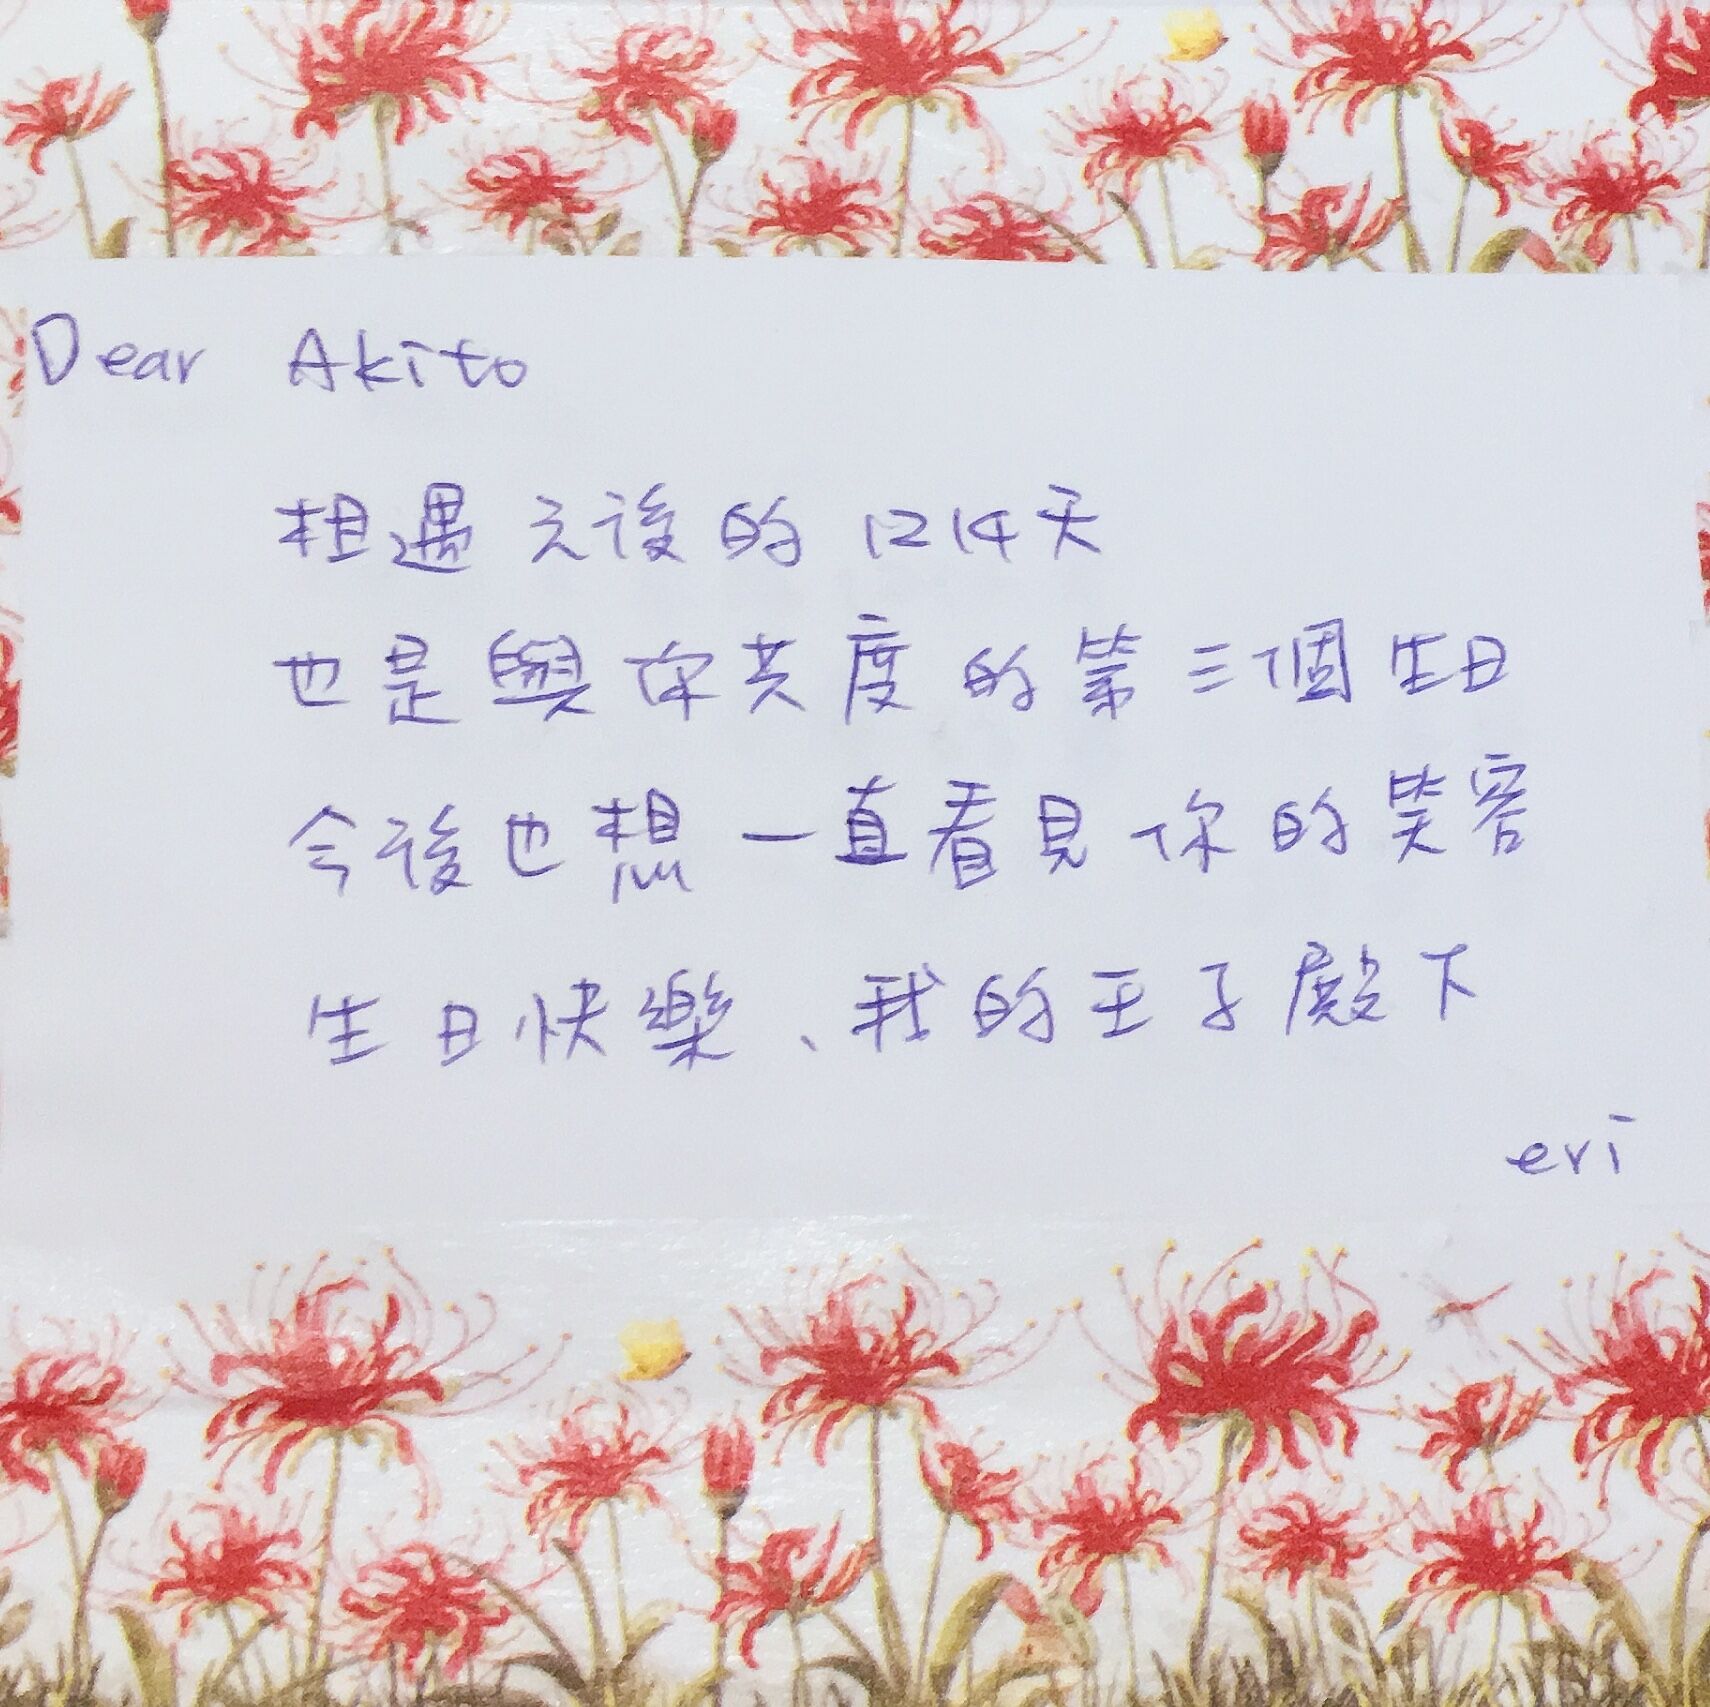 Dear Akito
相遇之後的1214天
也是與你共度的第三個生日
今後也想一直看見你的笑容
生日快樂、我的王子殿下
eri